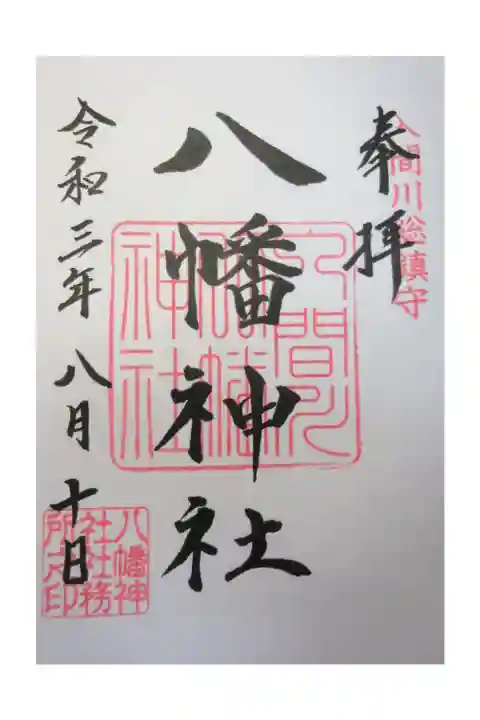 奉拝
入間川総鎮守
八幡神社
入間川
八幡
神社
令和三年八月十日
八幡神
社社務
所之印